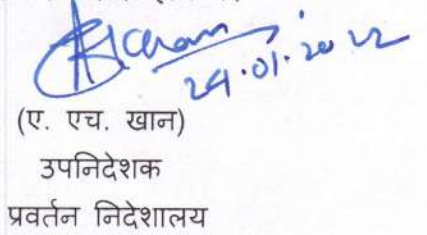 24.01.2022
(ए. एच. खान)
उपनिदेशक
प्रवर्तन निदेशालय